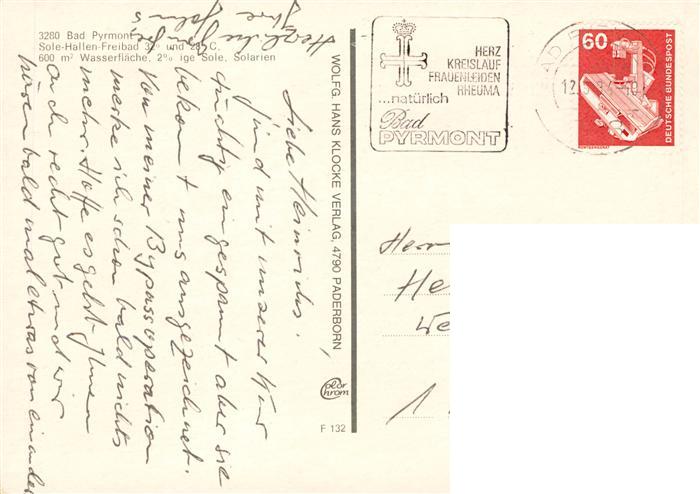 3280 Bad Pyrmont
Sole-Hallen-Freibad 32° und 28° C,
600 m² Wasserfläche, 2% ige Sole, Solarien
Liebe Heinrichs!
Sind mit unserer Kur
tüchtig eingespannt aber sie
bekomt uns ausgezeichnet.
Von meiner Bypassoperation
merke ich schon bald nichts
mehr. Hoffe es geht Ihnen
auch recht gut und wir
hören bald mal etwas von einander
Herzliche Grüße
Ihre
WOLFG. HANS KLOCKE VERLAG, 4790 PADERBORN
Color
Chrom
F 132
HERZ
KREISLAUF
FRAUENLEIDEN
RHEUMA
...natürlich
Bad
PYRMONT
60
DEUTSCHE BUNDESPOST
RÖNTGENGERÄT
Herr
He
We
1